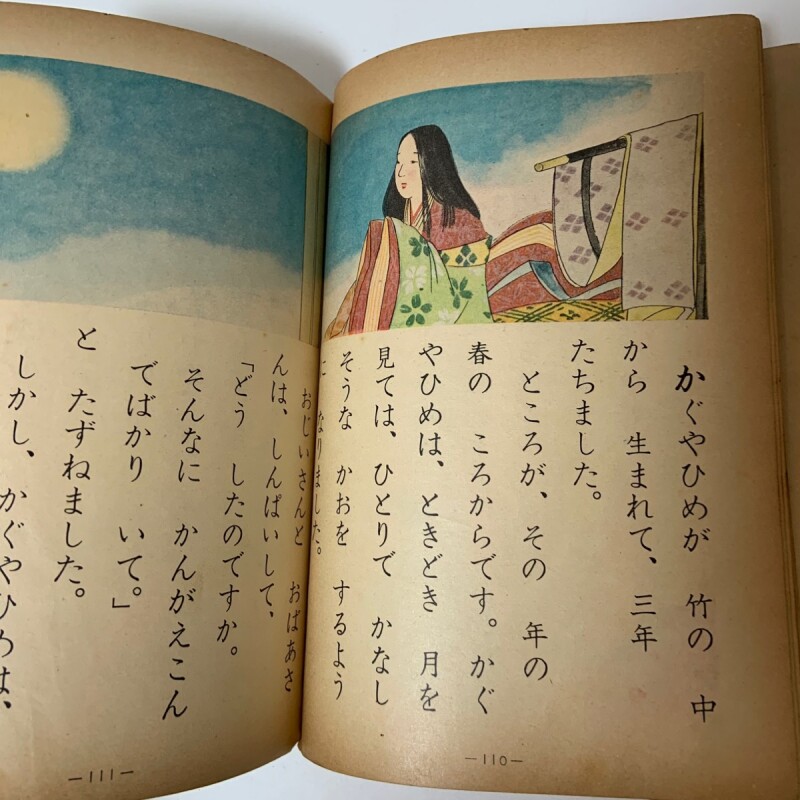 かぐやひめが 竹の 中
から 生まれて、三年
たちました。
ところが、その 年の
春の ころからです。かぐ
やひめは、ときどき 月を
見ては、ひとりで かなし
そうな かおを するよう
に なりました。
—110—
おじいさんと おばあさ
んは、しんぱいして、
「どう したのですか。
そんなに かんがえこん
でばかり いて。」
と たずねました。
しかし、かぐやひめは、
—111—